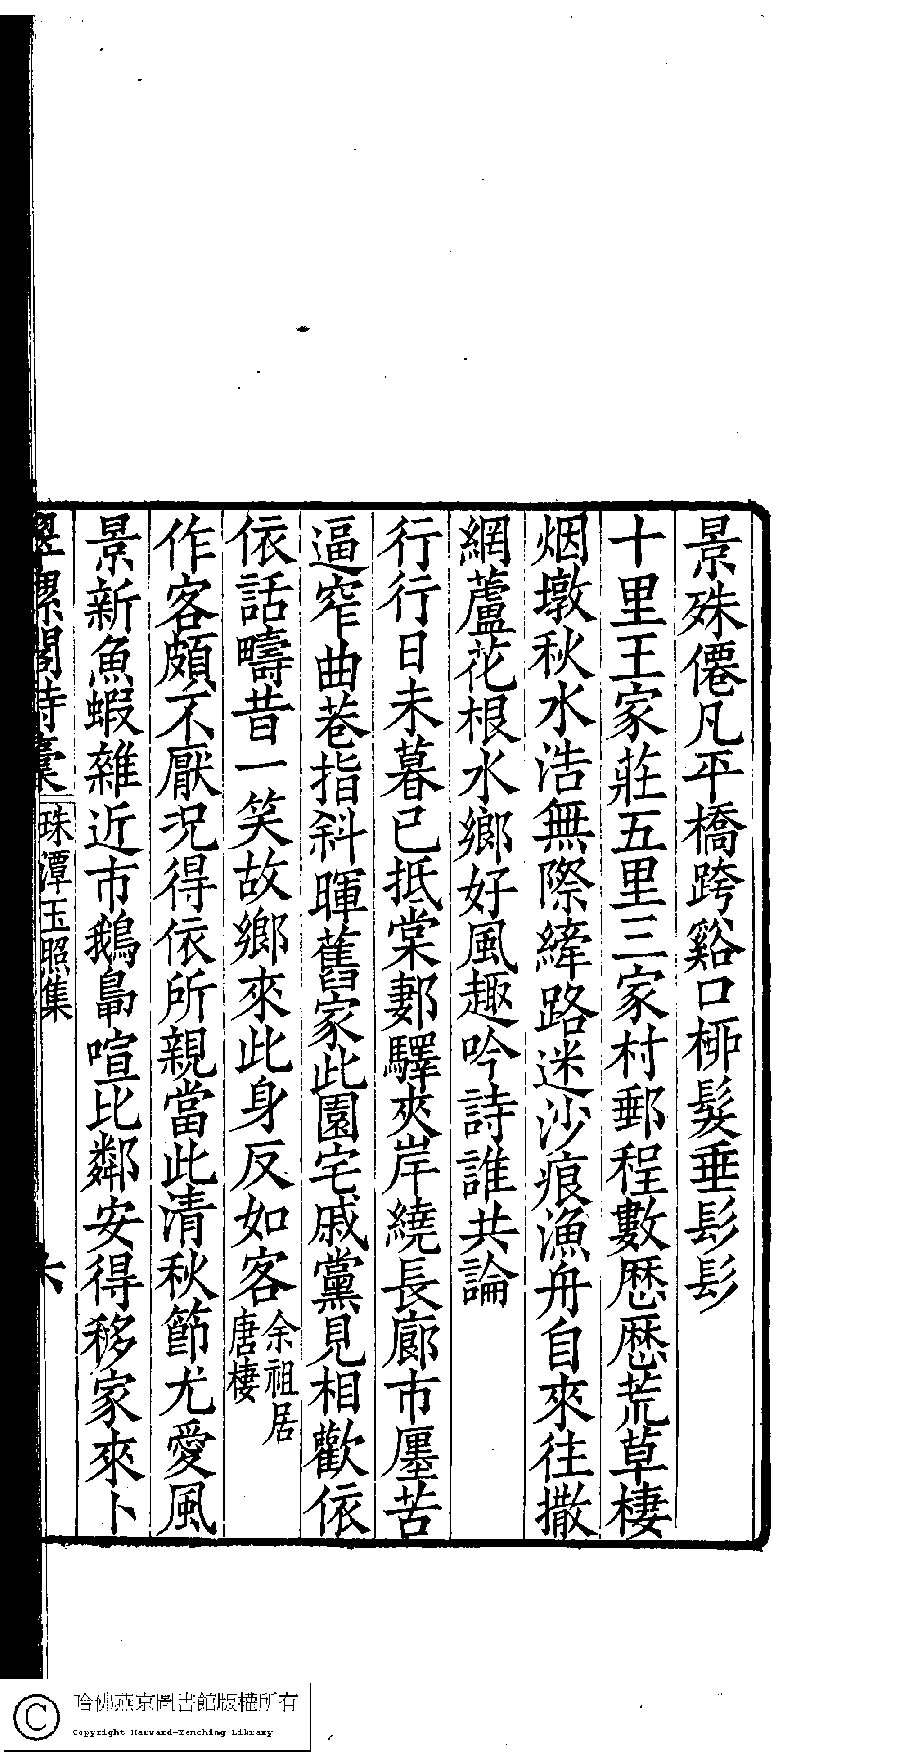 景殊僊凡平橋跨谿口栁髮垂髟髟
十里王家莊五里三家村郵程數歷歷荒草棲
烟墩秋水浩無際縴路迷沙痕漁舟自來往撒
網蘆花根水鄉好風趣吟詩誰共論
行行日未暮已抵棠鄴驛夾岸繞長廊市廛苦
逼窄曲巷指斜暉舊家此園宅戚黨見相歡依
依話疇昔一笑故鄉來此身反如客余祖居唐棲
作客頗不厭況得依所親當此清秋節尤愛風
景新魚蝦雜近市鵝鼻喧比鄰安得移家來卜
閣詩稾 珠潭玉照集 六
哈佛燕京圖書館版權所有
Copyright Harvard-Yenching Library